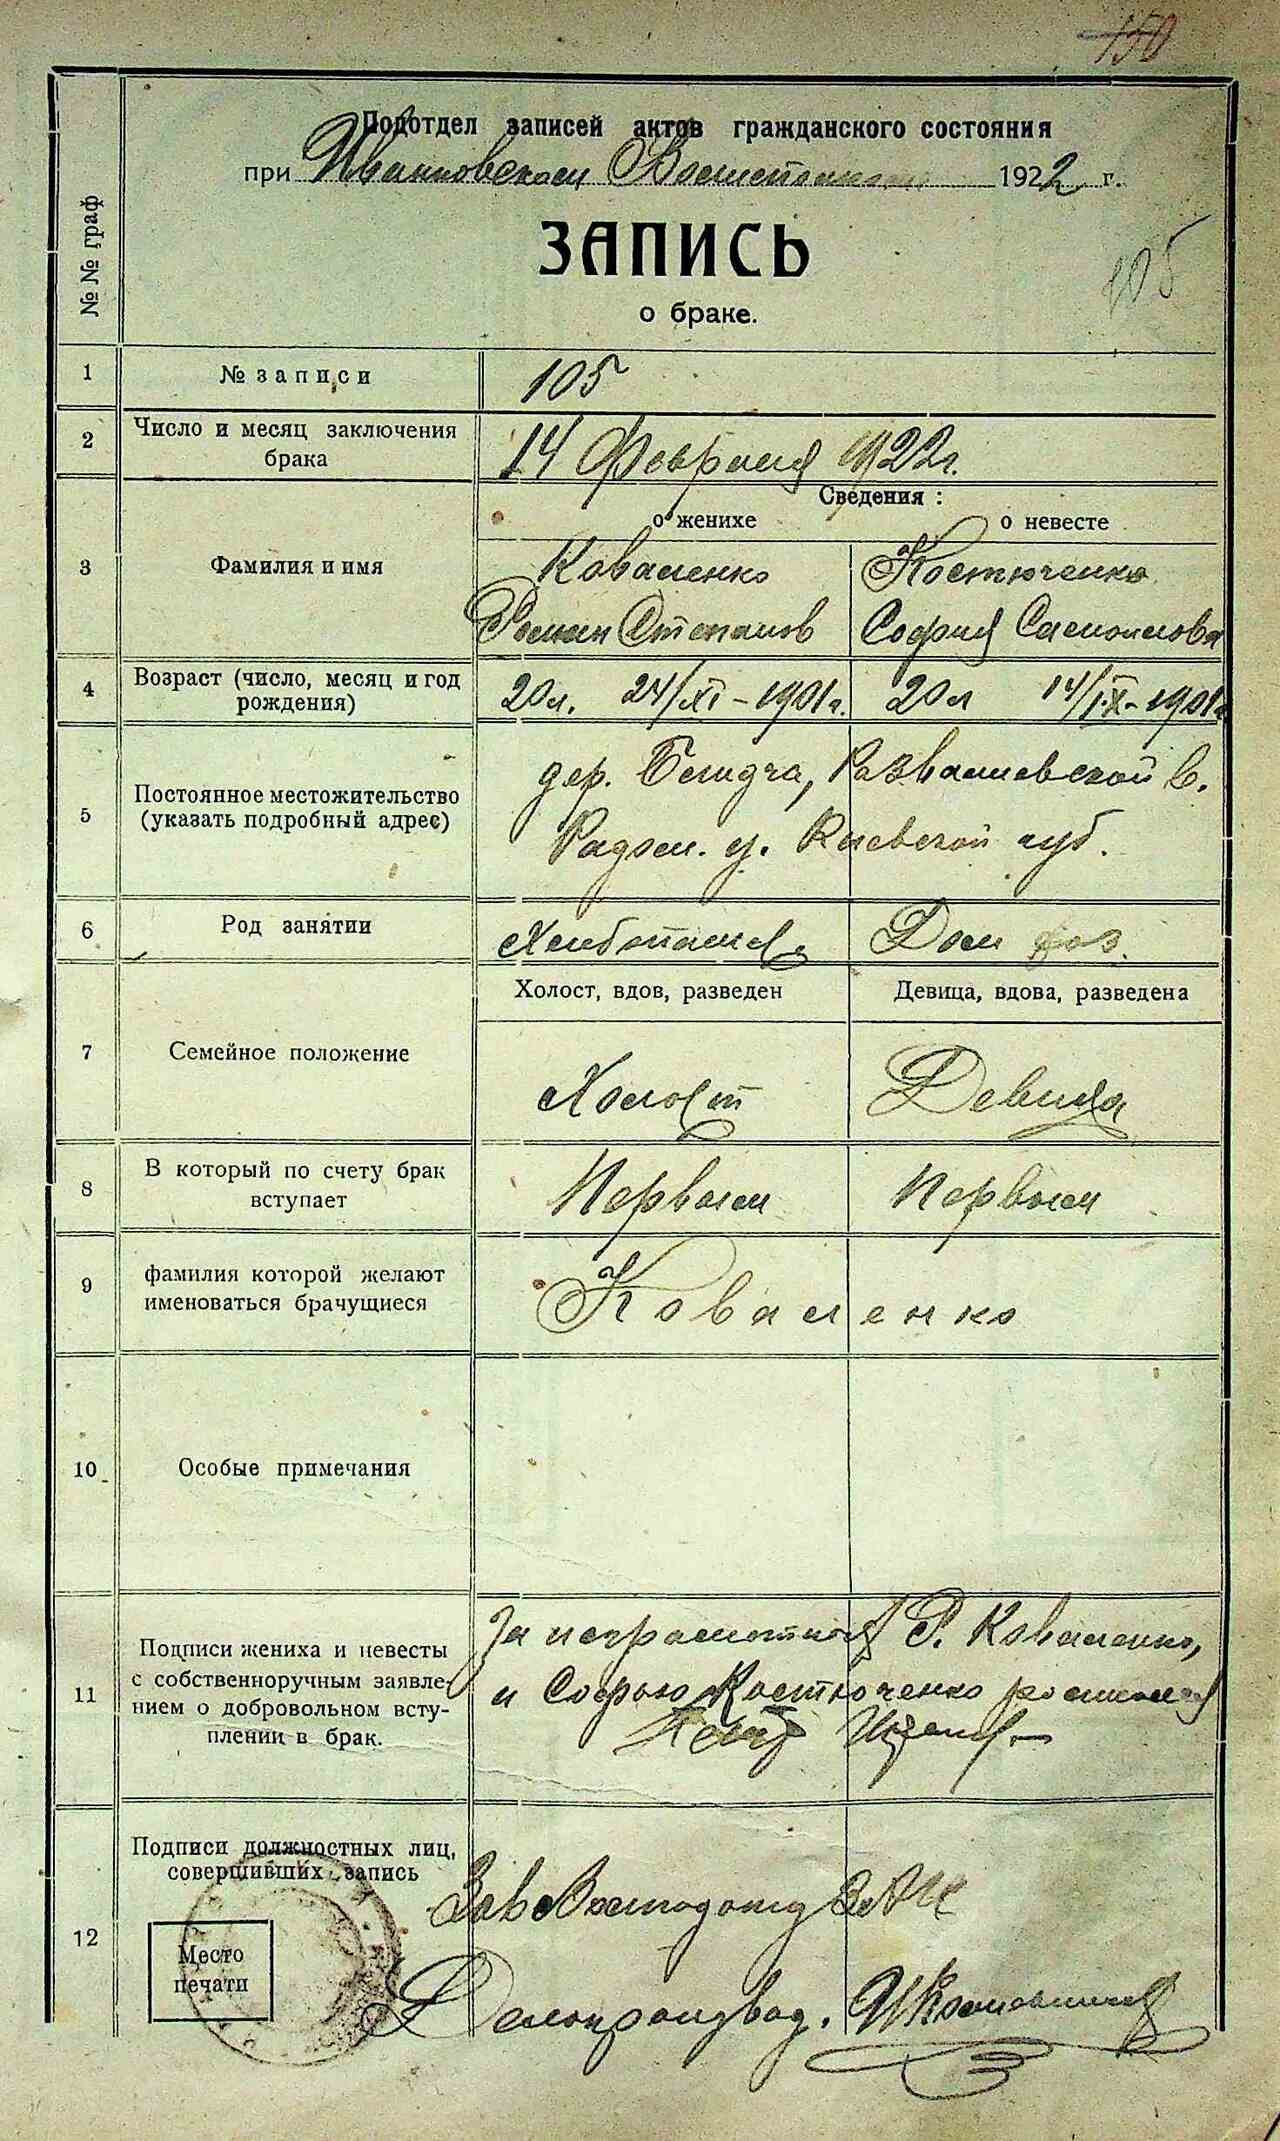 150
Подотдел записей актов гражданского состояния
при Иванковском Волисполкоме 1922 г.
№№ граф
ЗАПИСЬ
о браке.
105
1 № записи 105
2 Число и месяц заключения
брака
14 Февраля 1922 г.
Сведения:
о женихе о невесте
3 Фамилия и имя
Коваленко Костюченко
Роман Степанов София Самойлова
4 Возраст (число, месяц и год
рождения)
20 л. 24/XI - 1901 г. 20 л 14/IX - 1901 г
5 Постоянное местожительство
(указать подробный адрес)
дер. Белидча, Розважевской в.
Радом. у. Киевской губ.
6 Род занятии Хлебопашец Дом хоз.
Холост, вдов, разведен Девица, вдова, разведена
7 Семейное положение Холост Девица
8 В который по счету брак
вступает
Первый Первый
9 фамилия которой желают
именоваться брачущиеся
Коваленко
10 Особые примечания
11 Подписи жениха и невесты
с собственноручным заявле-
нием о добровольном всту-
плении в брак.
За неграмотных Р. Коваленко,
и Софью Костюченко
12 Подписи должностных лиц,
совершивших запись
Место
печати
Зав
Делопроизвод.